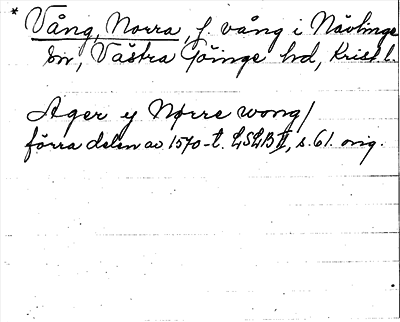 * Vång, Norra, f. vång i Nävlinge
sn, Västra Göinge hd, Krist l.
Ager y Nørre wong/
förra delen av 1570-t. LSLB II, s. 61. orig.